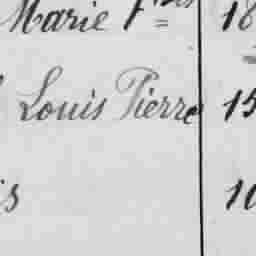 Marie Fçois 18
Louis Pierre 15
is 10